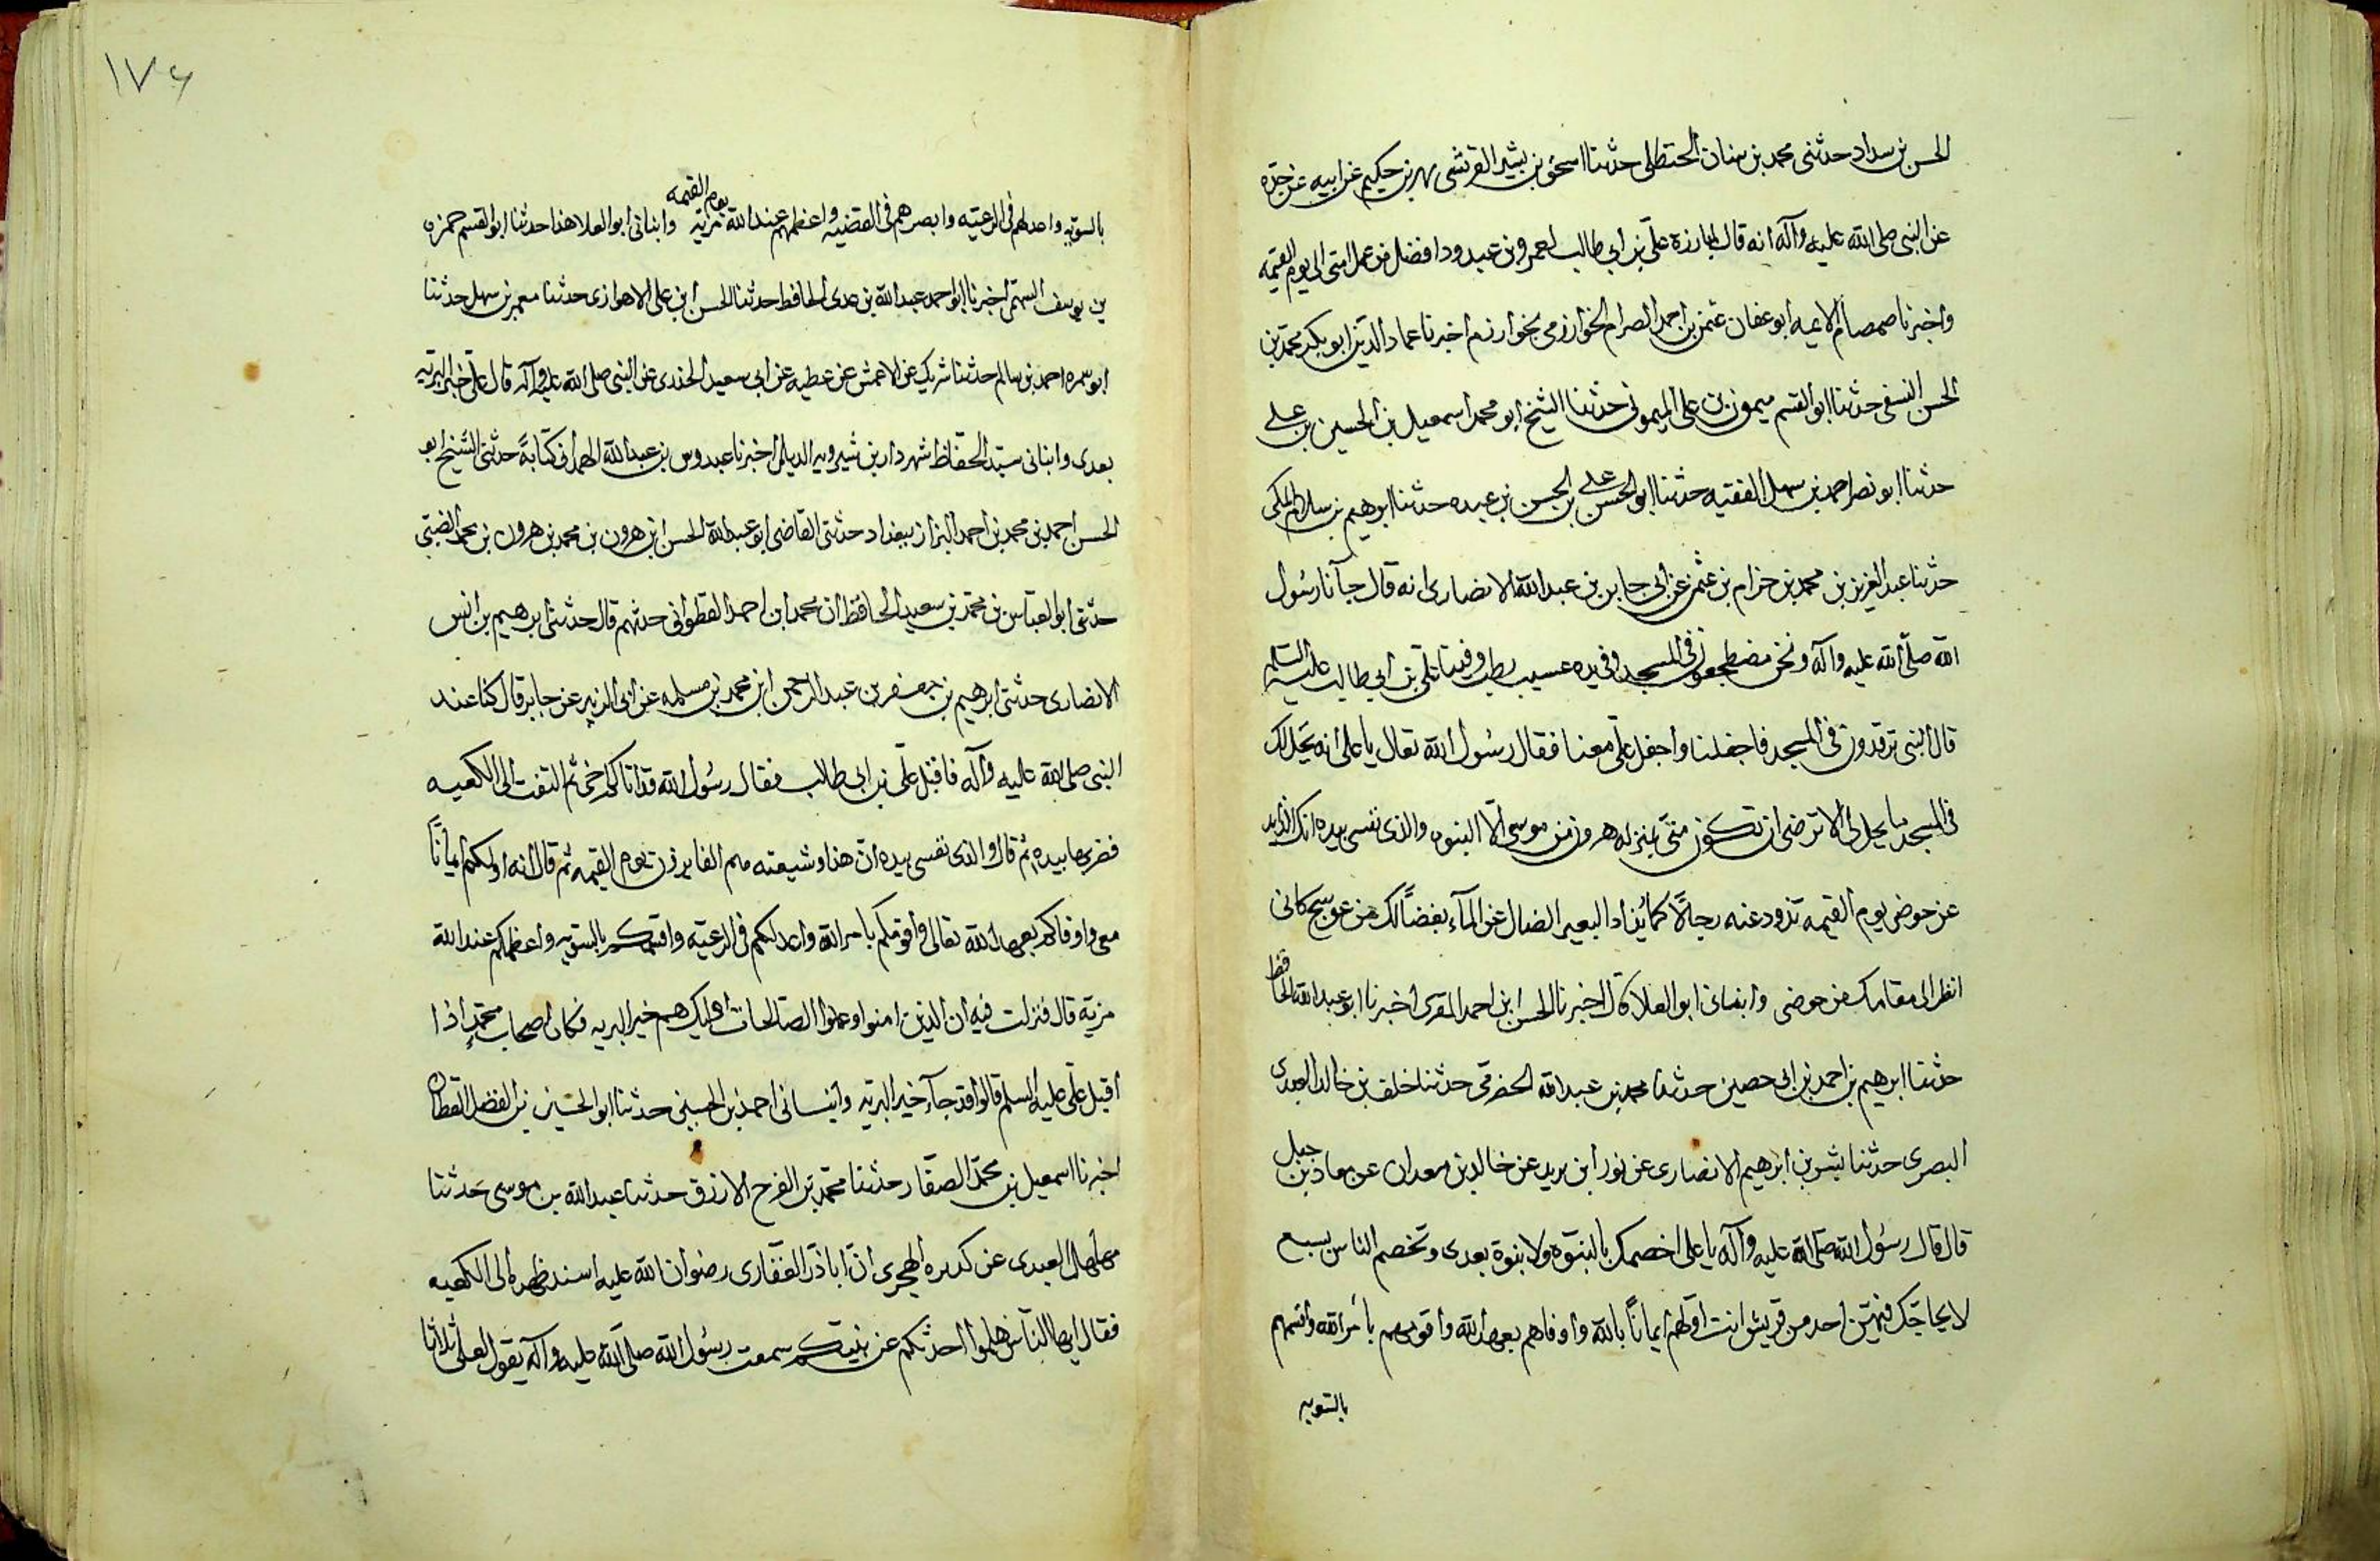 الحسن بن سداد حدثنى محمد بن سنان الحنظلى حدثنا اسحق بن بشير القرشى بهر بن حكيم عن ابيه عن جده
عن النبى صلى الله عليه وآله انه قال لمبارزه على بن ابى طالب لعمرو بن عبد ود افضل من عمل امتى الى يوم القيمه
واخبرنا صمصام الايمه ابو عفان عثمن بن احمد الصرام الخوارزمى بخوارزم اخبرنا عماد الدين ابو بكر محمد بن
الحسن النسفى حدثنا ابو القسم ميمون بن على الميمونى حدثنا الشيخ ابو محمد اسمعيل بن الحسين بن على
حدثنا ابو نصر احمد بن سهل الفقيه حدثنا ابو الحسن على بن الحسن بن عبده حدثنا ابرهيم بن سلام المكى
حدثنا عبد العزيز بن محمد بن حزام بن عثمن عن ابى جابر بن عبد الله الانصارى انه قال جآنا رسول
الله صلى الله عليه وآله ونحن مضطجعون فى المسجد وفى يده عسيب رطب وفينا على بن ابى طالب عليه السلم
قال النبى ترقدون فى المسجد فاجفلنا واجفل على معنا فقال رسول الله تعال يا على انه يحل لك
فى المسجد ما يحل لى الا ترضى ان تكون منى بمنزله هرون من موسى الا النبوه والذى نفسى بيده انك لذايد
عن حوضى يوم القيمه تذود عنه رجالًا كما يذاد البعير الضال عن المآء بعضًا لك من عوسج كانى
انظر الى مقامك من حوضى وانبانى ابو العلا قال اخبرنا الحسن ابن احمد المقرى اخبرنا ابو عبد الله الحافظ
حدثنا ابرهيم بن احمد بن ابى حصين حدثنا محمد بن عبد الله الحضرمى حدثنا خلف بن خالد العبدى
البصرى حدثنا بشر بن ابرهيم الانصارى عن ثور ابن يريد عن خالد بن معدان عن معاذ بن جبل
قال قال رسول الله صلى الله عليه وآله يا على اخصمك بالنبوه ولا نبوة بعدى وتخصم الناس بسبع
لا يحاجك فيهن احد من قريش انت اولهم ايمانًا بالله واوفاهم بعهد الله واقومهم بامر الله واقسمهم
بالسويه
١٧۶
بالسويه واعدلهم فى الرعيه وابصرهم فى القضيه واعظمهم عند الله مزيه يوم القيمه وانبانى ابو العلا هذا حدثنا ابو القسم حمزه
بن يوسف السهمى اخبرنا ابو احمد عبد الله بن عدى الحافظ حدثنا الحسن ابن على الاهوازى حدثنا معمر بن سهل حدثنا
ابو سمره احمد بن سالم حدثنا شريك عن الاعمش عن عطيه عن ابى سعيد الخدرى عن النبى صلى الله عليه وآله قال على خير البريه
بعدى وانبانى سيد الحفاظ شهردار بن شيرويه الديلمى اخبرنا عبدوس بن عبد الله الهمدانى كتابةً حدثنى الشيخ ابو
الحسن احمد بن محمد بن احمد البزاز ببغداد حدثنى القاضى ابو عبد الله الحسن ابن هرون بن محمد بن هرون بن محمد الضبى
حدثنى ابو العباس بن محمد بن سعيد الحافظ ان محمد ابن احمد القطوانى حدثهم قال حدثنى ابرهيم بن انس
الانصارى حدثنى ابرهيم بن جعفر بن عبد الرحمن ابن محمد بن مسلمه عن ابى الزبير عن جابر قال كنا عند
النبى صلى الله عليه وآله فاقبل على بن ابى طالب فقال رسول الله قد اتاكم اخى ثم التفت الى الكعبه
فضربها بيده ثم قال والذى نفسى بيده ان هذا وشيعته هم الفايزون يوم القيمه ثم قال انه اولكم ايمانًا
معى واوفاكم بعهد الله تعالى واقومكم بامر الله واعدلكم فى الرعيه واقسمكم بالسويه واعظمكم عند الله
مزيه قال فنزلت فيه ان الذين امنوا وعملوا الصالحات اوليك هم خير البريه فكان اصحاب محمد اذا
اقبل على عليه السلم قالوا قد جآء خير البريه وانبانى احمد بن الحسين حدثنا ابو الحسين بن الفضل القطان
اخبرنا اسمعيل بن محمد الصفار حدثنا محمد بن الفرح الازرق حدثنا عبد الله بن موسى حدثنا
مهلهل العبدى عن كديره الهجرى ان اباذر الغفارى رضوان الله عليه اسند ظهره الى الكعبه
فقال ايها الناس هلموا احدثكم عن نبيكم سمعت رسول الله صلى الله عليه وآله يقول لعلى ثلاثا